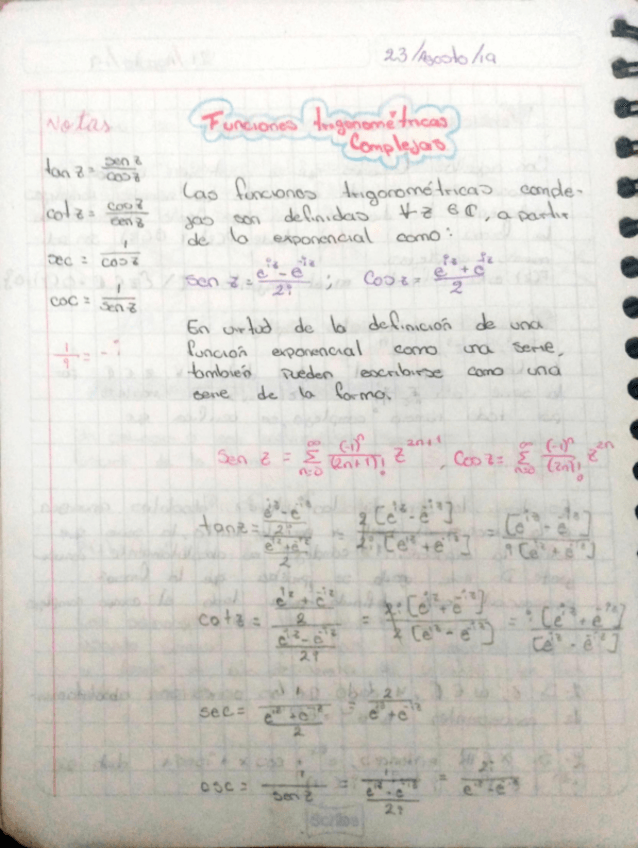 23/Agosto/19
Notas
Funciones trigonométricas
Complejas
tan z = sen z / cos z
cot z = cos z / sen z
sec = 1 / cos z
csc = 1 / sen z
1/i = -i
Las funciones trigonométricas comple-
jas son definidas ∀ z ∈ ℂ, a partir
de la exponencial como:
sen z = (e^{iz} - e^{-iz}) / 2i ; Cos z = (e^{iz} + e^{-iz}) / 2
En virtud de la definición de una
función exponencial como una serie,
también pueden escribirse como una
serie de la forma.
Sen z = ∑_{n=0}^{∞} (-1)^n / (2n+1)! z^{2n+1}, Cos z = ∑_{n=0}^{∞} (-1)^n / (2n)! z^{2n}
tan z = ((e^{iz} - e^{-iz}) / 2i) / ((e^{iz} + e^{-iz}) / 2) = 2[e^{iz} - e^{-iz}] / 2i[e^{iz} + e^{-iz}] = [e^{iz} - e^{-iz}] / i[e^{iz} + e^{-iz}]
cot z = ((e^{iz} + e^{-iz}) / 2) / ((e^{iz} - e^{-iz}) / 2i) = 2i[e^{iz} + e^{-iz}] / 2[e^{iz} - e^{-iz}] = i[e^{iz} + e^{-iz}] / [e^{iz} - e^{-iz}]
sec = 1 / ((e^{iz} + e^{-iz}) / 2) = 2 / (e^{iz} + e^{-iz})
csc = 1 / sen z = 1 / ((e^{iz} - e^{-iz}) / 2i) = 2i / (e^{iz} - e^{-iz})
Scribe